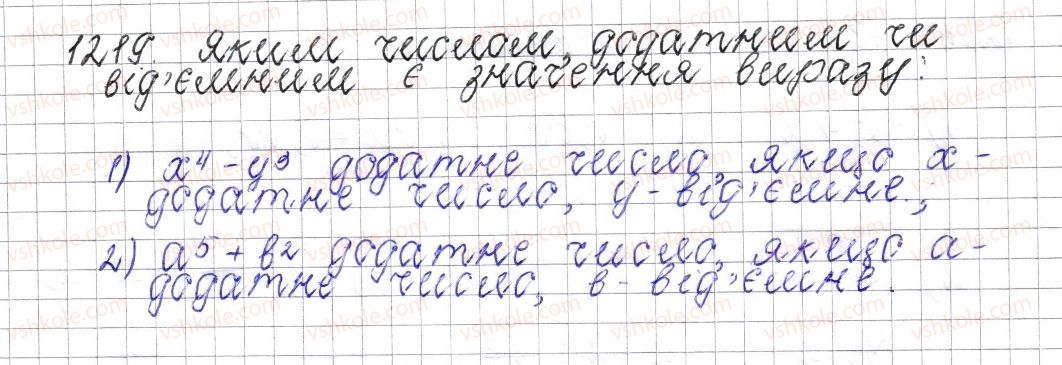 1219. Яким числом, додатним чи
від'ємним є значення виразу:
1) x⁴ - y³ додатне число, якщо x -
додатне число, y - від'ємне.;
2) a⁵ + в2 додатне число, якщо a -
додатне число, в - від'ємне.